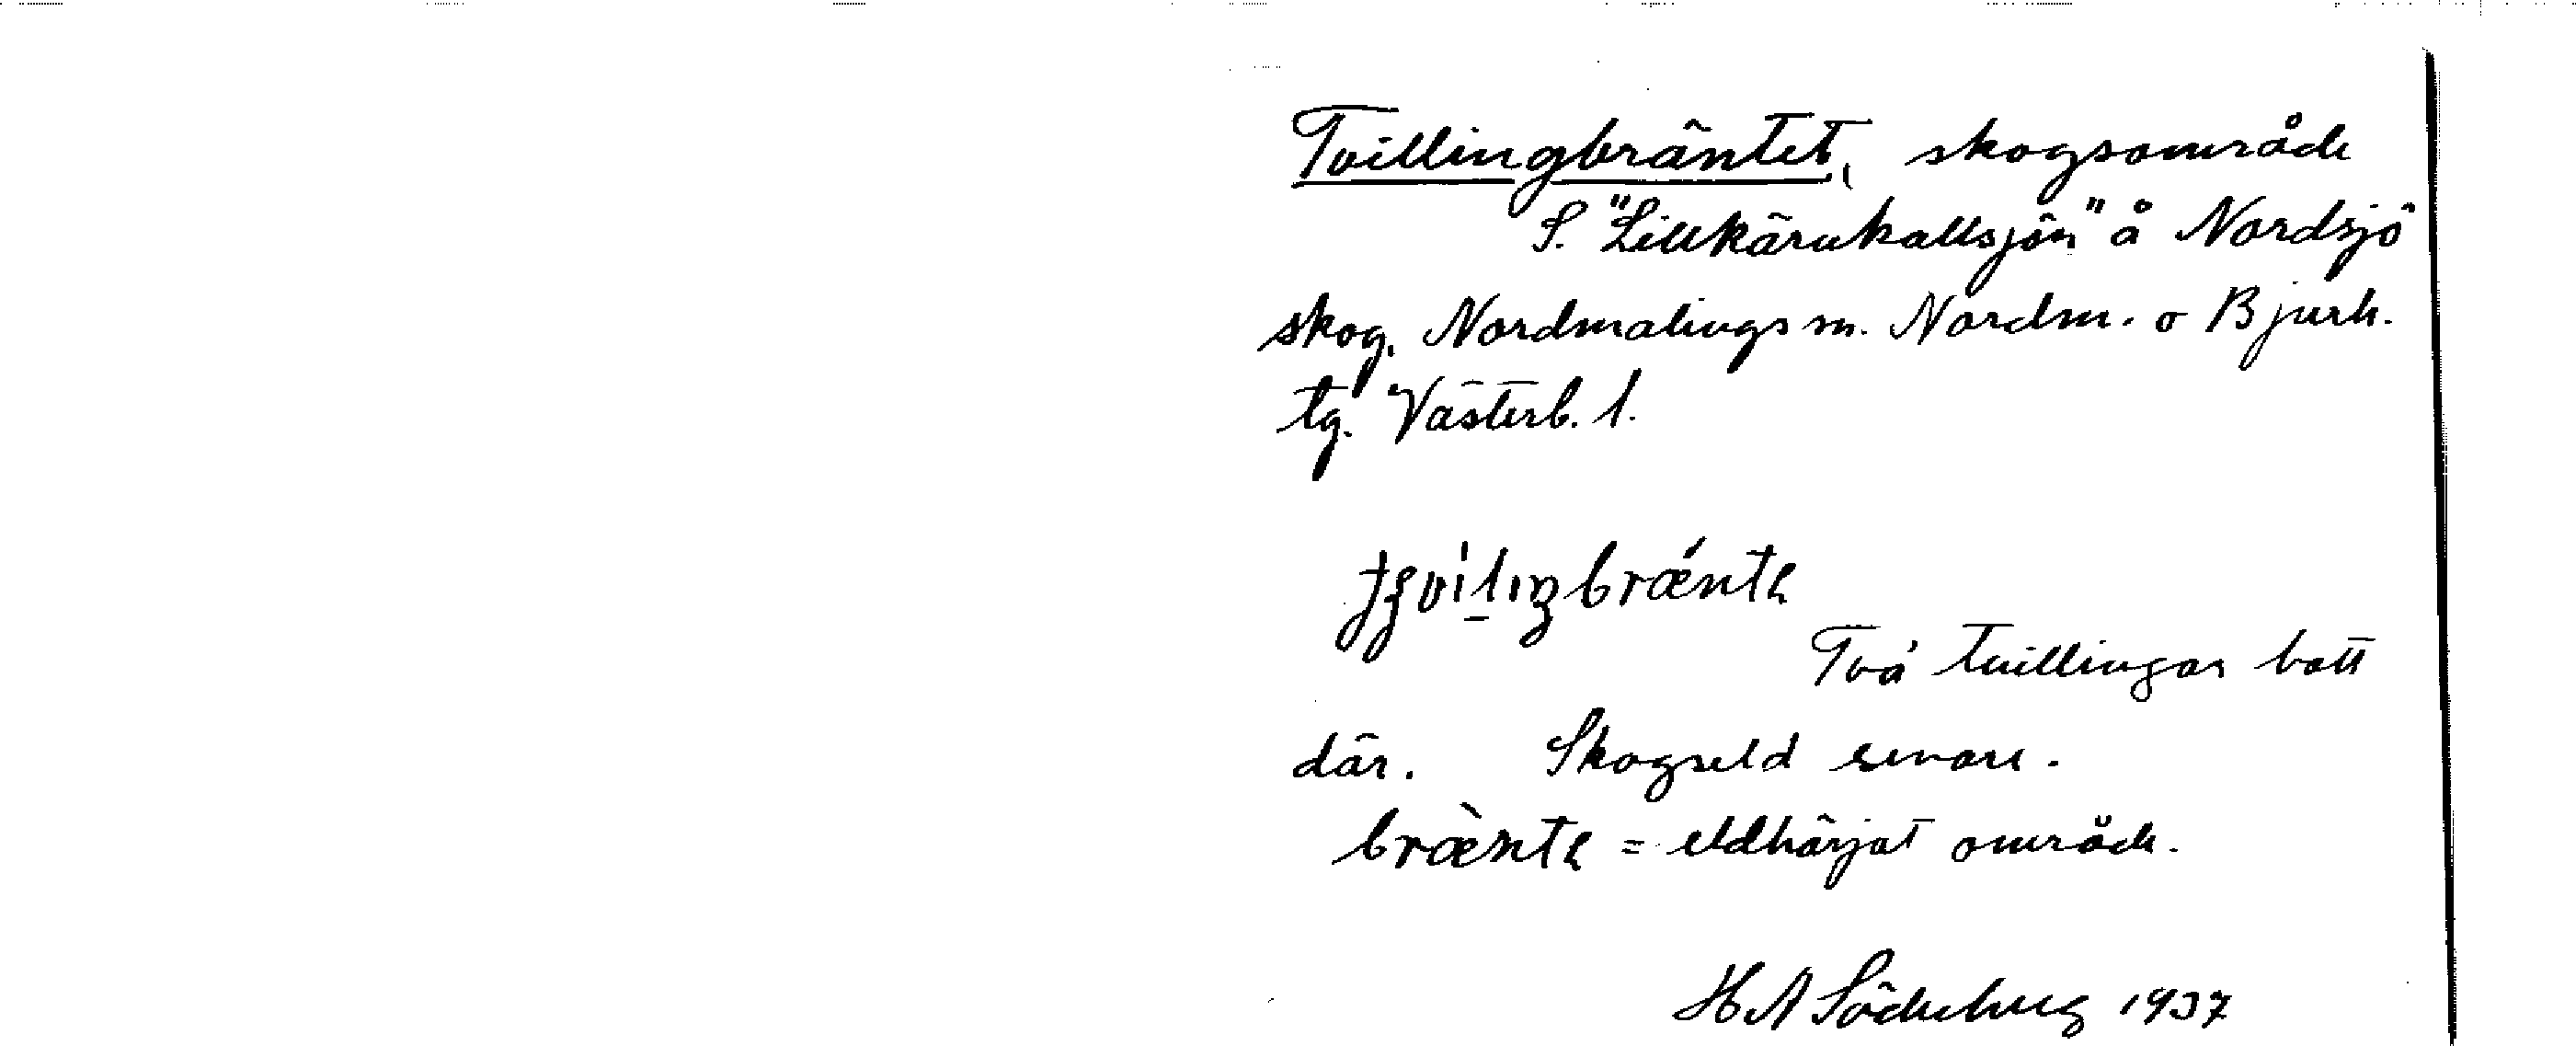 Tvillingbräntet, skogsområde
S. "Lillkärukallsjön" å Nordsjö
skog. Nordmalings sn. Nordm. o Bjurh.
tg. Västerb. l.
Två tvillingar bott
där. Skogseld senare.
brænte = eldhärjat område.
H A Söderberg 1937